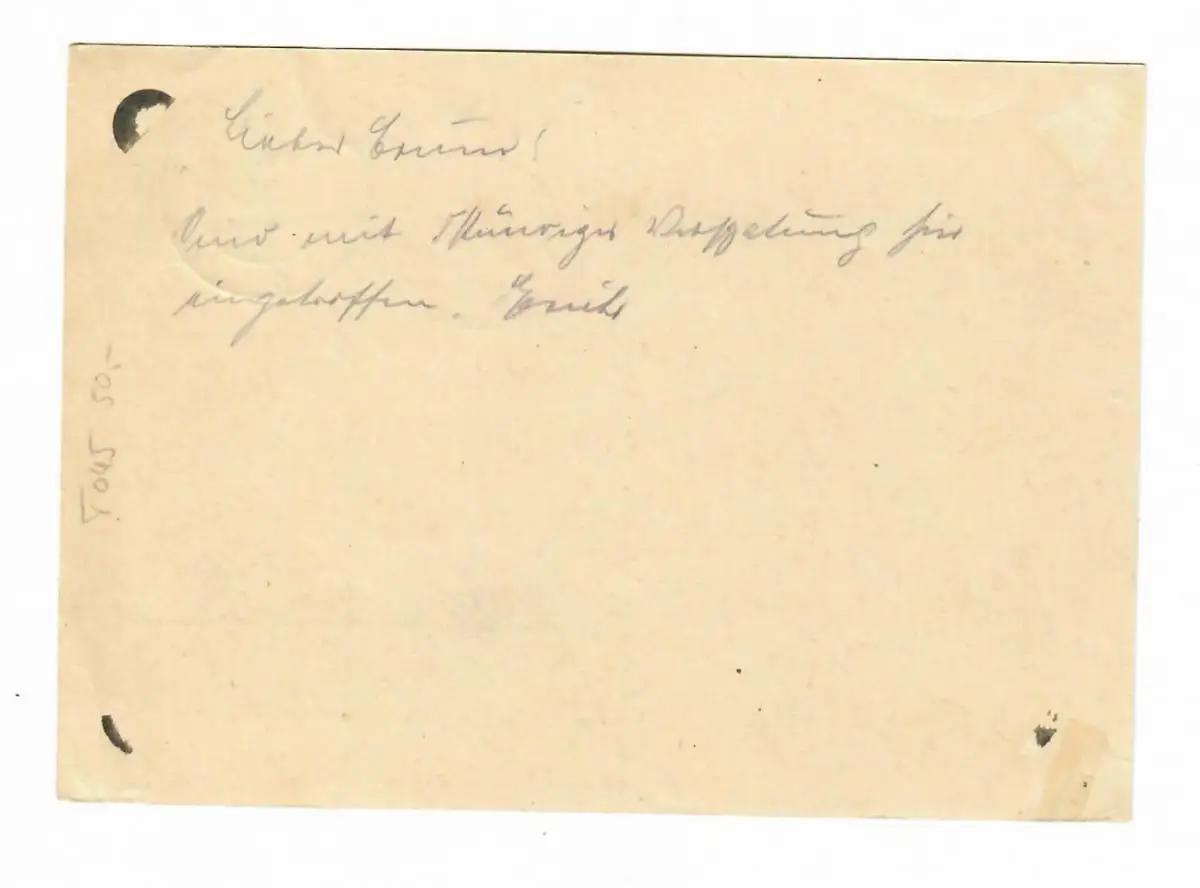 Lieber Bruno!
Sind mit stündiger Verspätung hier
eingetroffen. Erich
T045 50,-